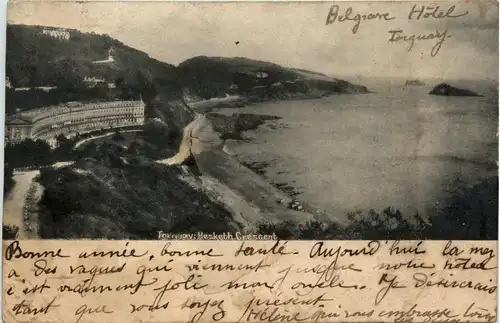 Belgrave Hôtel
Torquay
Torquay: Hesketh Crescent
Bonne année, bonne santé. Aujourd'hui la mer
a des vagues qui viennent jusqu'à notre hôtel
c'est vraiment joli mon oncle. Je désirerais
tant que vous soyez présent.
Hélène qui vous embrasse